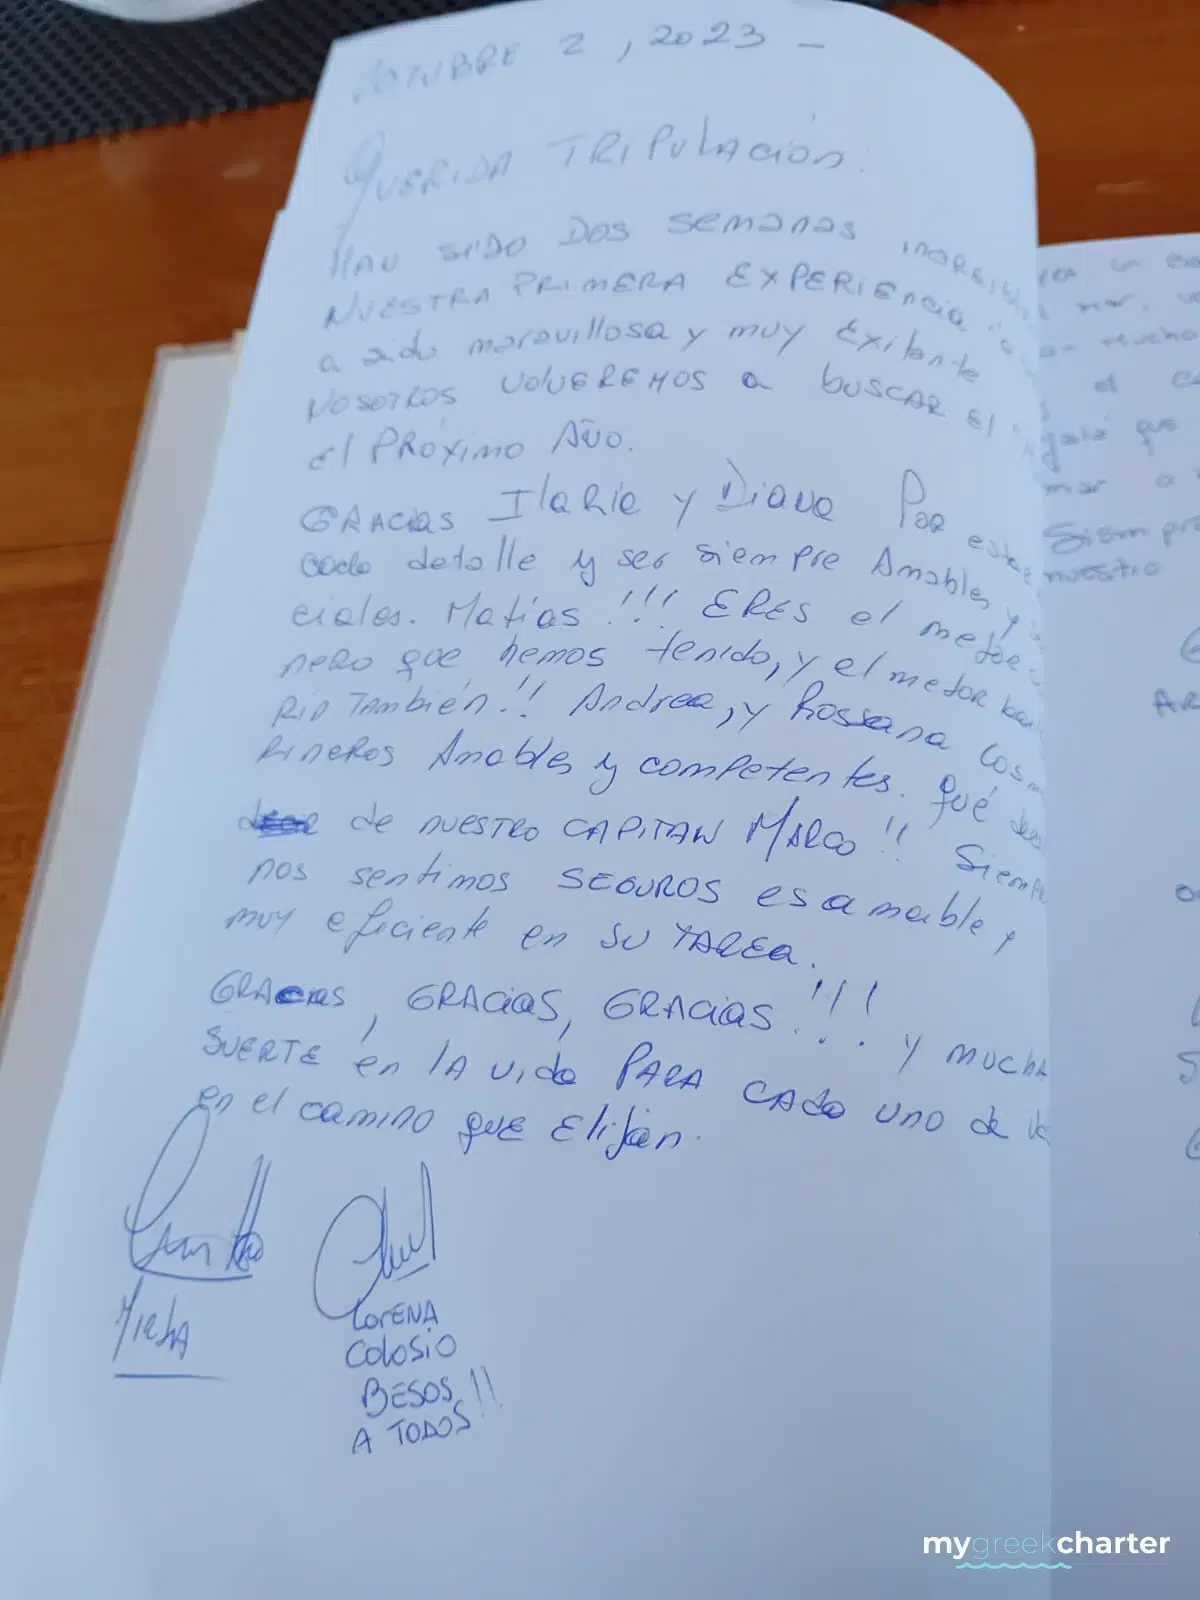 OCTUBRE 2, 2023 -
QUERIDA TRIPULACIÓN:
HAN SIDO DOS SEMANAS
NUESTRA PRIMERA EXPERIENCIA
a sido maravillosa y muy Exitante
NOSOTROS VOLVEREMOS a buscar El
El PRÓXIMO AÑO.
GRACIAS Ilaria y Diana Por este
cada detalle y ser siempre Amables y
ciales. Matías !!! ERES el mejor
nero que hemos tenido, y el mejor
RIO También!! Andrea, y Rossana los
RINEROS Amables y competentes. qué
de nuestro CAPITAN MARCO!! Siempre
nos sentimos SEGUROS es amable y
muy eficiente en SU TAREA.
GRACIAS, GRACIAS, GRACIAS!!! y MUCHA
SUERTE en LA vida PARA cada uno de
en el camino que Elijan.
MIRTA
LORENA
COLOSIO
BESOS
A TODOS!!
mar.
mucho
el
que
mar
Siempre
nuestro
mygreekcharter